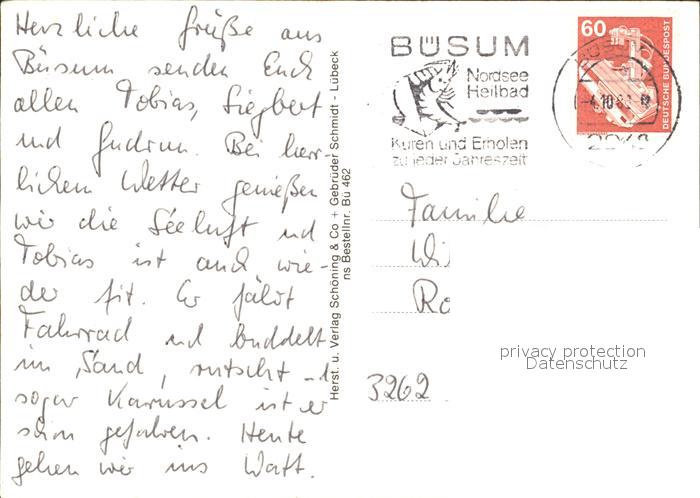 Herzliche Grüße aus
Büsum senden Euch
allen Tobias, Siegbert
und Gudrun. Bei herr-
lichem Wetter genießen
wir die Seeluft und
Tobias ist auch wie-
der fit. Er fährt
Fahrrad und buddelt
im Sand, rutscht -
sogar Karussel ist er
schon gefahren. Heute
gehen wir ins Watt.
Herst. u. Verlag Schöning & Co + Gebrüder Schmidt - Lübeck
ns Bestellnr. Bü 462
BÜSUM
Nordsee
Heilbad
Kuren und Erholen
zu jeder Jahreszeit
60
DEUTSCHE BUNDESPOST
BÜSUM
Familie
Wi
Ro
3262
privacy protection
Datenschutz